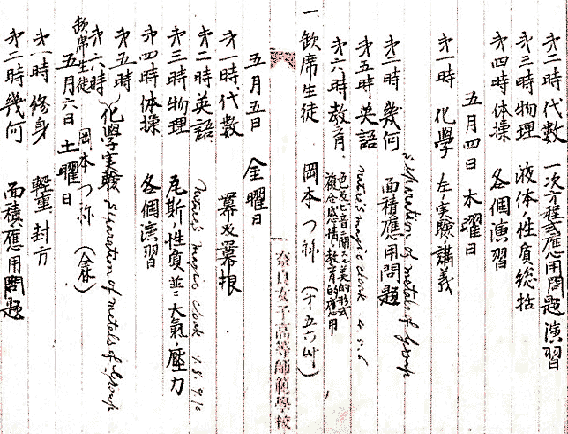 第二時代数 一次方程式應用問題演習
第三時物理 液体ノ性質総括
第四時体操 各個演習
五月四日 木曜日
第一時 化學 左ノ実験講義
Separation of metals of group
第二時 幾何 面積應用問題
第五時 英語 magic clock 4.5.6
第六時 教育
複合感情ノ教育的應用
一 欽席生徒 岡本つ祢
奈良女子高等師範學校
五月五日 金曜日
第一時代数 冪及冪根
第二時英語 magic clock 7.8.9.10
第三時物理 瓦斯ノ性質並ニ大氣ノ壓力
第四時体操 各個演習
第五時
第六時 化學実験 Separation of metals of group
欽席生徒 岡本つ祢
五月六日 土曜日
第一時修身
第二時幾何 面積應用問題